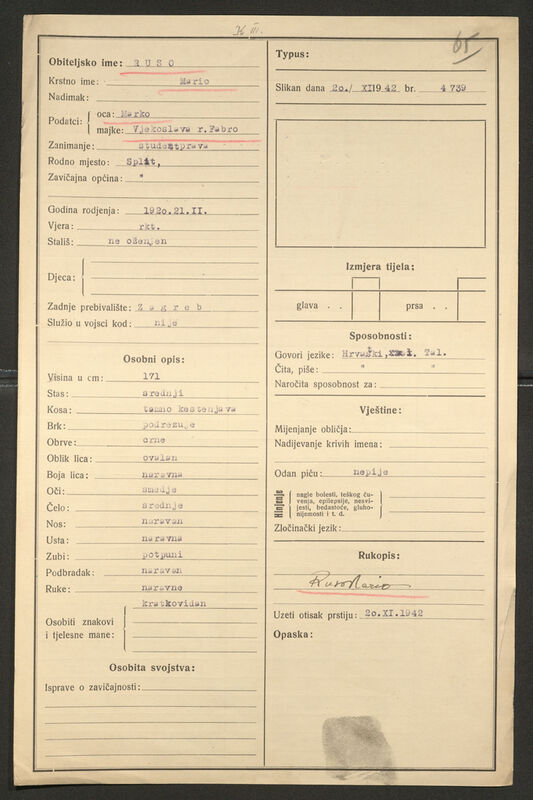 K III.
65
Obiteljsko ime: RUSO
Krstno ime: Mario
Nadimak:
Podatci: { oca: Marko
majke: Vjekoslava r. Fabro
Zanimanje: student prava
Rodno mjesto: Split,
Zavičajna općina: "
Godina rodjenja: 1920.21.II.
Vjera: rkt.
Stališ: ne oženjen
Djeca:
Zadnje prebivalište: Zagreb
Služio u vojsci kod: nije
Osobni opis:
Visina u cm: 171
Stas: srednji
Kosa: tamno kestenjava
Brk: podrezuje
Obrve: crne
Oblik lica: ovalan
Boja lica: naravna
Oči: smedje
Čelo: srednje
Nos: naravan
Usta: naravna
Zubi: potpuni
Podbradak: naravan
Ruke: naravne
kratkovidan
Osobiti znakovi
i tjelesne mane:
Osobita svojstva:
Isprave o zavičajnosti:
Typus:
Slikan dana 20./XI 1942 br. 4739
Izmjera tijela:
glava . . prsa . .
Sposobnosti:
Govori jezike: Hrvatski, Tal.
Čita, piše: " "
Naročita sposobnost za:
Vještine:
Mijenjanje obličja:
Nadijevanje krivih imena:
Odan piću: nepije
Hinjenje { nagle bolesti, teškog ću-
venja, epilepsije, nesvi-
jesti, bedastoće, gluho-
nijemosti i t. d.
Zločinački jezik:
Rukopis:
Ruso Mario
Uzeti otisak prstiju: 20.XI.1942
Opaska: